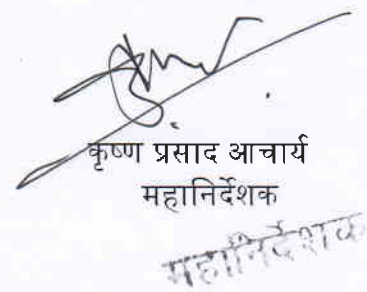 कृष्ण प्रसाद आचार्य
महानिर्देशक
महानिर्देशक